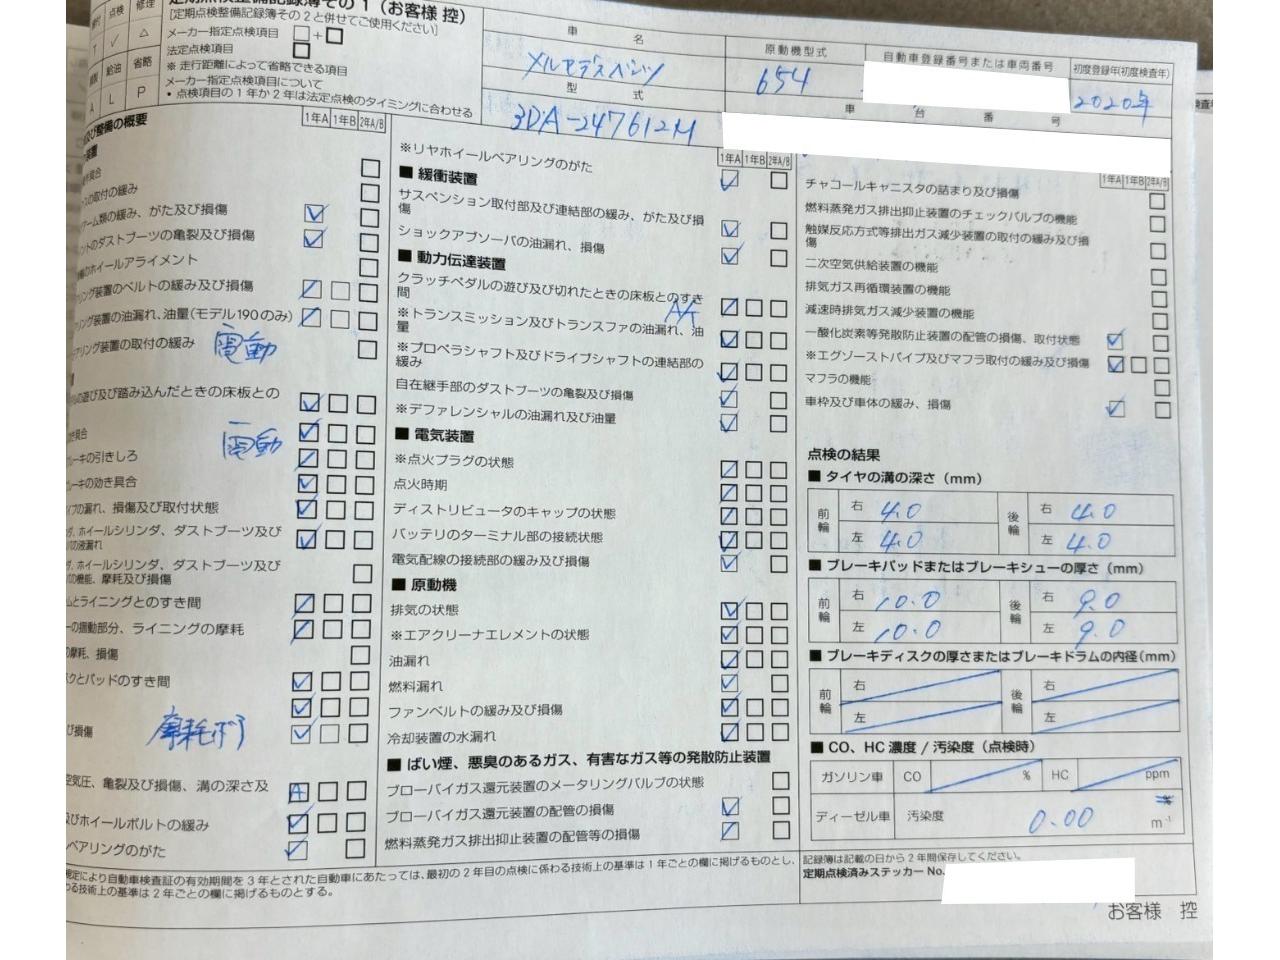 定期点検整備記録簿その1(お客様 控)
[定期点検整備記録簿その2と併せてご使用ください]
点検 修理
T ✓ △
給油 省略
A L P
メーカー指定点検項目 □+□
法定点検項目 □
※ 走行距離によって省略できる項目
メーカー指定点検項目について
・点検項目の1年か2年は法定点検のタイミングに合わせる
車 名
メルセデスベンツ
型 式
3DA-247612M
原動機型式
654
自動車登録番号または車両番号
初度登録年(初度検査年)
2020年
車 台 番 号
及び整備の概要
1年A 1年B 2年A/B
具合
の取付の緩み
アーム類の緩み、がた及び損傷
ントのダストブーツの亀裂及び損傷
のホイールアライメント
リング装置のベルトの緩み及び損傷
リング装置の油漏れ、油量(モデル190のみ)
アリング装置の取付の緩み
電動
の遊び及び踏み込んだときの床板との
き具合
電動
ブレーキの引きしろ
ブレーキの効き具合
イプの漏れ、損傷及び取付状態
ダ、ホイールシリンダ、ダストブーツ及び
の液漏れ
ダ、ホイールシリンダ、ダストブーツ及び
の機能、摩耗及び損傷
ムとライニングとのすき間
ーの摺動部分、ライニングの摩耗
の摩耗、損傷
スクとパッドのすき間
び損傷
空気圧、亀裂及び損傷、溝の深さ及
A
及びホイールボルトの緩み
ベアリングのがた
※リヤホイールベアリングのがた
1年A 1年B 2年A/B
■ 緩衝装置
サスペンション取付部及び連結部の緩み、がた及び損
傷
ショックアブソーバの油漏れ、損傷
■ 動力伝達装置
クラッチペダルの遊び及び切れたときの床板とのすき
間
A/T
※トランスミッション及びトランスファの油漏れ、油
量
※プロペラシャフト及びドライブシャフトの連結部の
緩み
自在継手部のダストブーツの亀裂及び損傷
※デファレンシャルの油漏れ及び油量
■ 電気装置
※点火プラグの状態
点火時期
ディストリビュータのキャップの状態
バッテリのターミナル部の接続状態
電気配線の接続部の緩み及び損傷
■ 原動機
排気の状態
※エアクリーナエレメントの状態
油漏れ
燃料漏れ
ファンベルトの緩み及び損傷
冷却装置の水漏れ
■ ばい煙、悪臭のあるガス、有害なガス等の発散防止装置
ブローバイガス還元装置のメータリングバルブの状態
ブローバイガス還元装置の配管の損傷
燃料蒸発ガス排出抑止装置の配管等の損傷
1年A 1年B 2年A/B
チャコールキャニスタの詰まり及び損傷
燃料蒸発ガス排出抑止装置のチェックバルブの機能
触媒反応方式等排出ガス減少装置の取付の緩み及び損
傷
二次空気供給装置の機能
排気ガス再循環装置の機能
減速時排気ガス減少装置の機能
一酸化炭素等発散防止装置の配管の損傷、取付状態
※エグゾーストパイプ及びマフラ取付の緩み及び損傷
マフラの機能
車枠及び車体の緩み、損傷
点検の結果
■ タイヤの溝の深さ(mm)
前輪 右 4.0 後輪 右 4.0
左 4.0 左 4.0
■ ブレーキパッドまたはブレーキシューの厚さ(mm)
前輪 右 10.0 後輪 右 9.0
左 10.0 左 9.0
■ ブレーキディスクの厚さまたはブレーキドラムの内径(mm)
前輪 右 後輪 右
左 左
■ CO、HC 濃度 / 汚染度(点検時)
ガソリン車 CO % HC ppm
ディーゼル車 汚染度 0.00 % m⁻¹
規定により自動車検査証の有効期間を3年とされた自動車にあたっては、最初の2年目の点検に係わる技術上の基準は1年ごとの欄に掲げるものとし、
わる技術上の基準は2年ごとの欄に掲げるものとする。
記録簿は記載の日から2年間保存してください。
定期点検済みステッカー No.
お客様 控